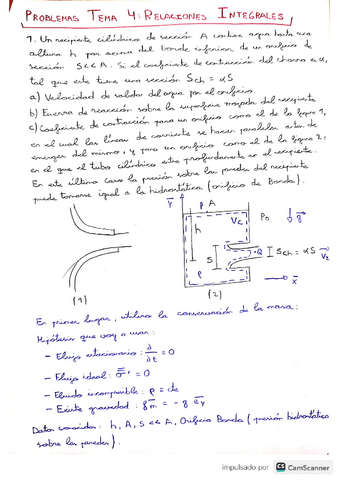 PROBLEMAS TEMA 4: RELACIONES INTEGRALES
1. Un recipiente cilíndrico de sección A contiene agua hasta una
altura h por encima del borde inferior de un orificio de
sección S<<A. Si el coeficiente de contracción del chorro es α,
tal que este tiene una sección Sch = αS
a) Velocidad de salida del agua por el orificio
b) Fuerza de reacción sobre la superficie mojada del recipiente
c) Coeficiente de contracción para un orificio como el de la figura 1,
en el cual las líneas de corriente se hacen paralelas antes de
emerger del mismo, y para un orificio como el de la figura 2,
en el que el tubo cilíndrico entra profundamente en el recipiente.
En este último caso la presión sobre las paredes del recipiente
puede tomarse igual a la hidrostática (orificio de Borda).
P A
h
Vc
P0
g
S
Q
Sch = αS
V2
ρ
x
(1)
(2)
En primer lugar, utilizo la conservación de la masa:
Hipótesis que voy a usar:
- Flujo estacionario: ∂/∂t = 0
- Flujo ideal: σ' = 0
- Fluido incompresible: ρ = cte
- Existe gravedad: fm = -g ey
Datos conocidos: h, A, S << A, Orificio Borda (presión hidrostática
sobre las paredes).
impulsado por CS CamScanner